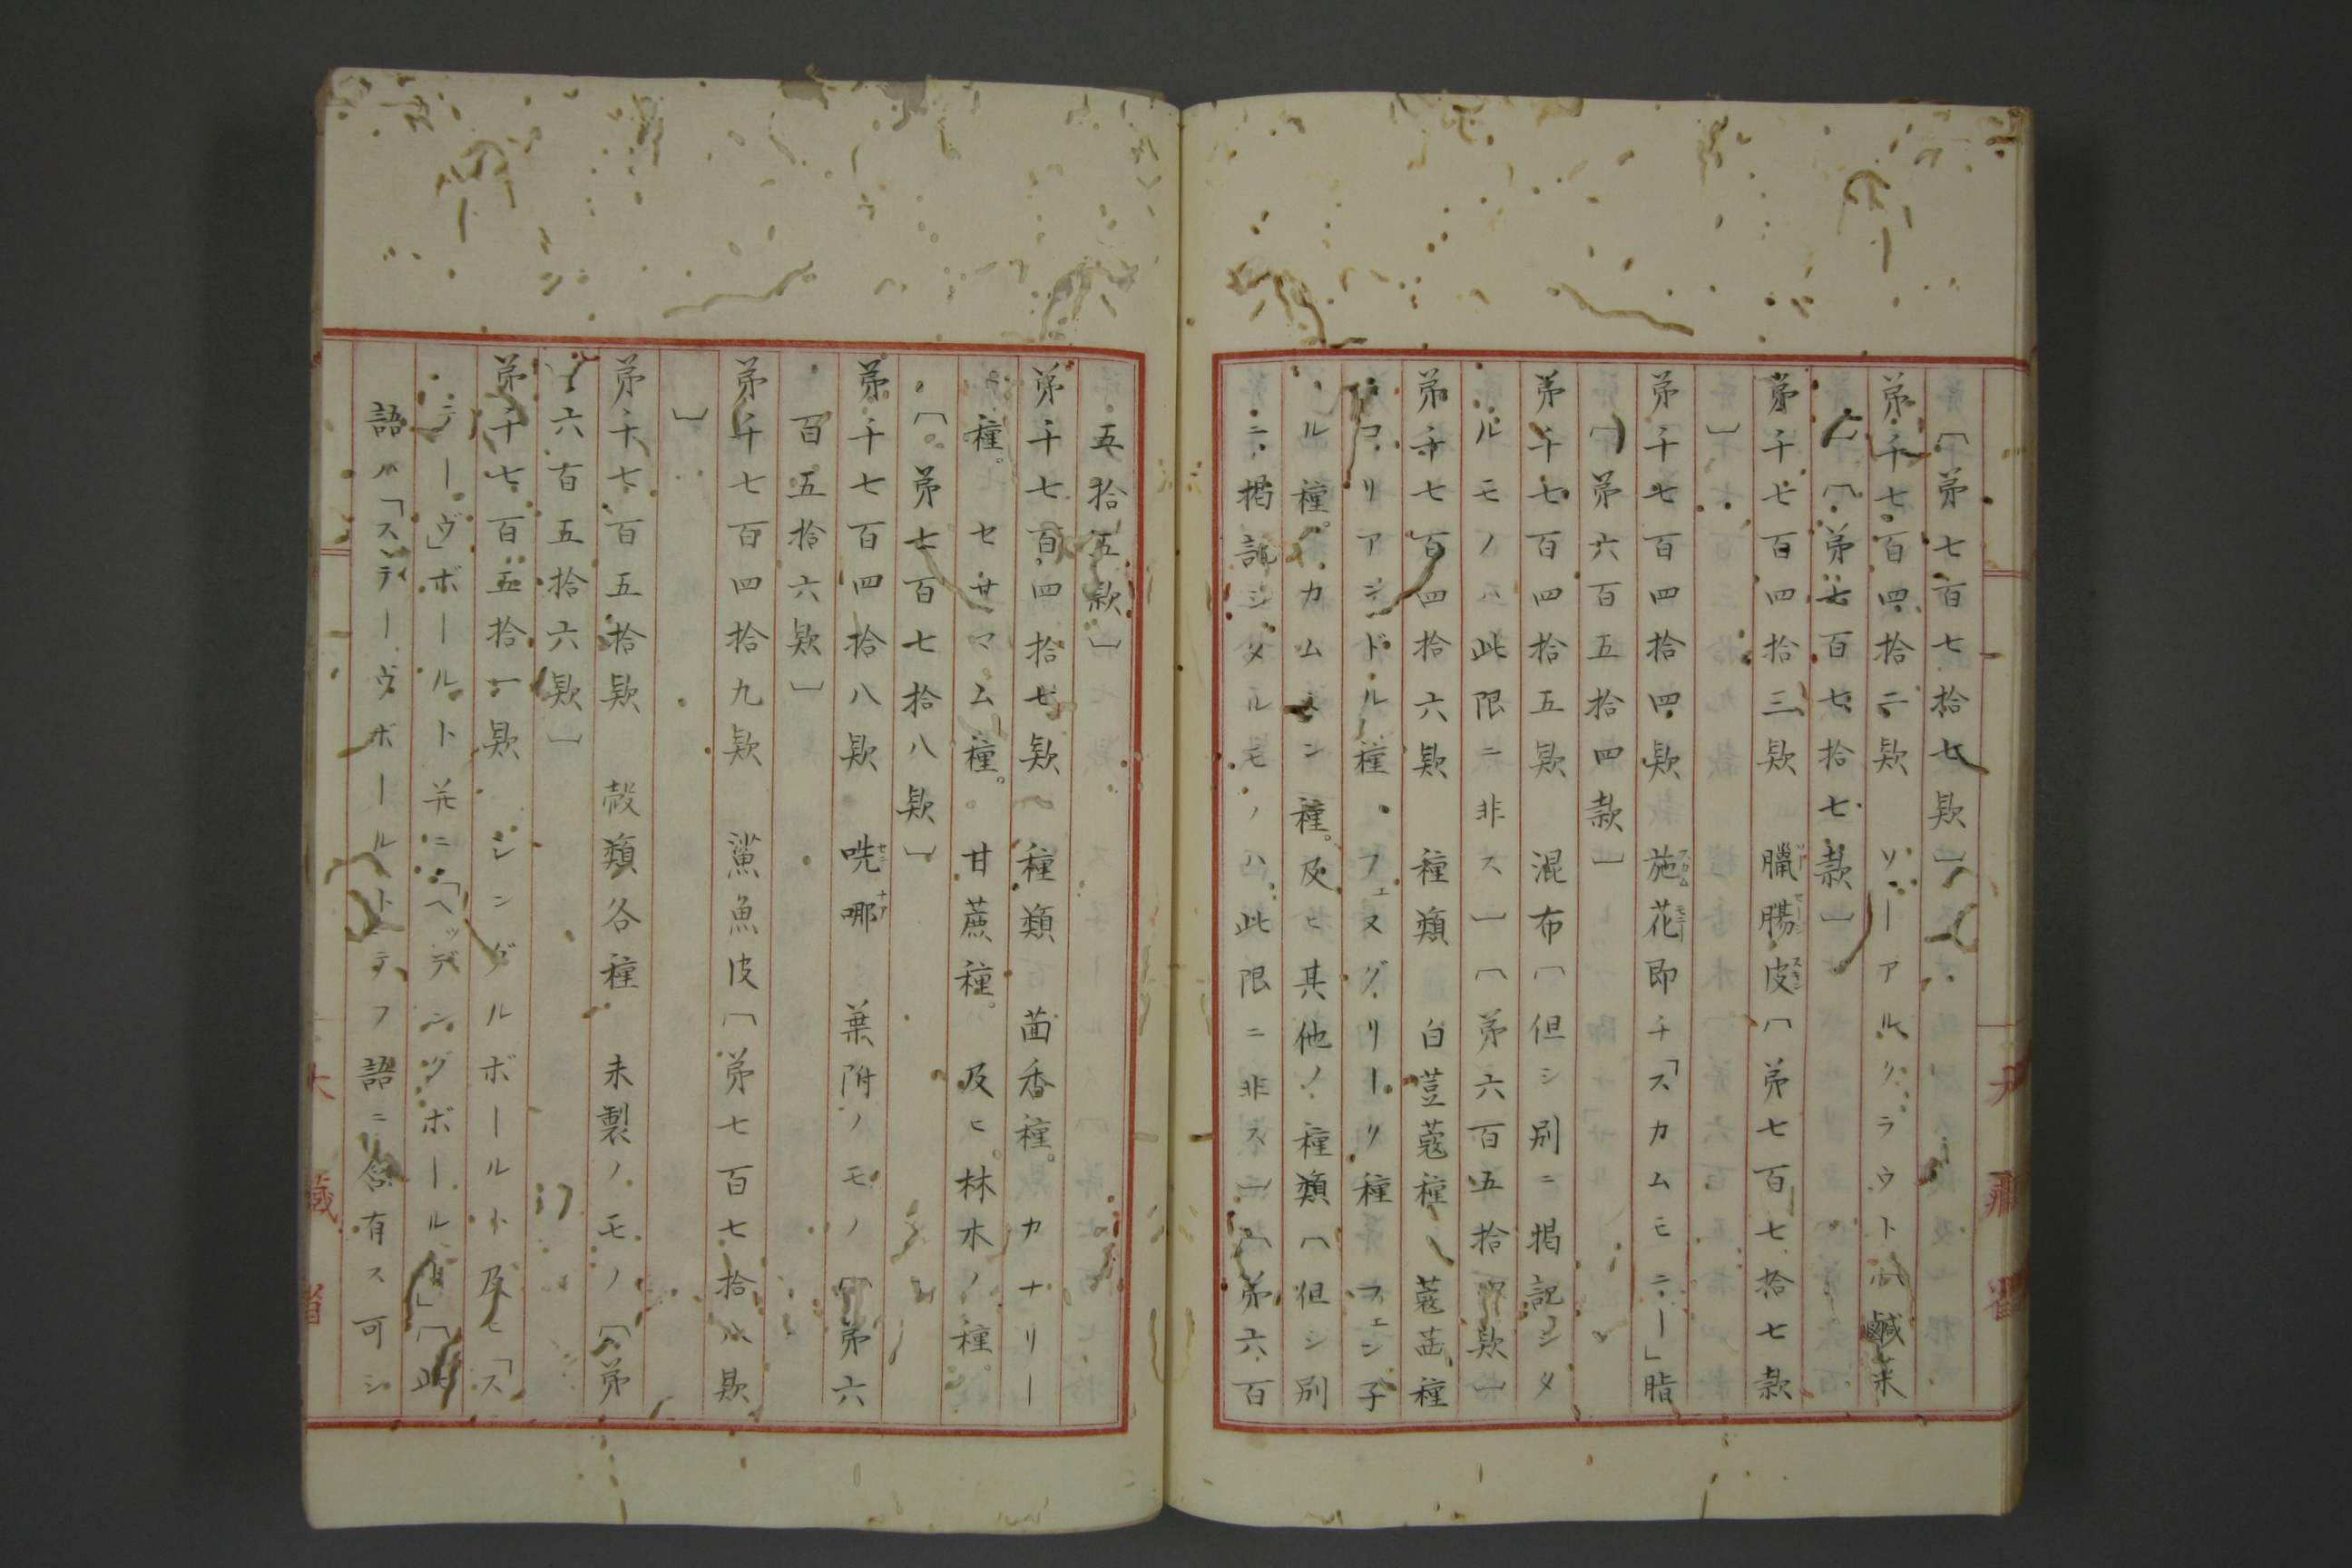 〔第七百七拾七欵〕
第千七百四拾二欵　ソーアルクラウト　鹹菜
〔第七百七拾七款〕
第千七百四拾三欵　臘腸皮〔第七百七拾七款
〕
第千七百四拾四欵　施花即チ「スカムモニー」脂
〔第六百五拾四款〕
第千七百四拾五欵　混布〔但シ別ニ掲記シタ
ルモノハ此限ニ非ス〕〔第六百五拾欵〕
第千七百四拾六欵　種類　白荳蔻種　蔻茴種
コリアンドル種　フェヌグリーク種　フェン子
ル種。カムメン種。及ヒ其他ノ種類〔但シ別
ニ掲記シタルモノハ此限ニ非ス〕〔第六百
五拾五款〕
第千七百四拾七欵　種類　茴香種　カナリー
種。セサマム種。甘蔗種。及ヒ林木ノ種。
〔第七百七拾八欵〕
第千七百四拾八欵　哯哪　葉附ノモノ〔第六
百五拾六欵〕
第千七百四拾九欵　鯊魚皮〔第七百七拾八欵
〕
第千七百五拾欵　殻類各種　未製ノモノ〔第
六百五拾六欵〕
第千七百五拾一欵　シングルボールト及ヒ「ス
テーヴ」ボールト并ニ「ヘッデングボールト」〔此
語ハ「ステーヴボールト」テフ語ニ含有ス可シ
大藏省